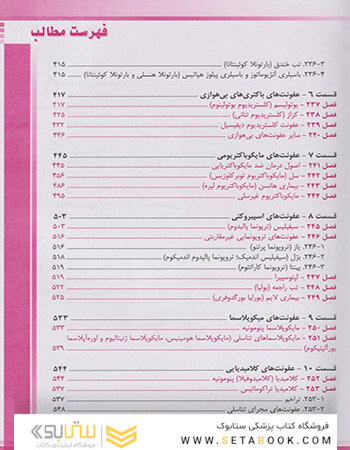 فهرست مطالب
۳-۲۳۶. تب خندق (بارتونلا کوئینتانا) ۴۱۵
۴-۲۳۶. باسیلری آنژیوماتوز و باسیلری پیلوز هپاتیس (بارتونلا هنسلی و بارتونلا کوئینتانا) ۴۱۵
قسمت ۶ - عفونت‌های باکتری‌های بی‌هوازی ۴۱۷
فصل ۲۳۷ - بوتولیسم (کلستریدیوم بوتولینوم) ۴۱۷
فصل ۲۳۸ - کزاز (کلستریدیوم تتانی) ۴۲۸
فصل ۲۳۹ - عفونت کلستریدیوم دیفیسیل ۴۳۲
فصل ۲۴۰ - سایر عفونت‌های بی‌هوازی ۴۳۶
قسمت ۷ - عفونت‌های مایکوباکتریومی ۴۴۵
فصل ۲۴۱ - اصول درمان ضد مایکوباکتریایی ۴۴۵
فصل ۲۴۲ - سل (مایکوباکتریوم توبرکلوزیس)
فصل ۲۴۳ - بیماری هانسن (مایکوباکتریوم لپره) ۴۸۶
فصل ۲۴۴ - مایکوباکتریوم غیرسلی ۴۹۵
قسمت ۸ - عفونت‌های اسپیروکتی ۵۰۳
فصل ۲۴۵ - سیفیلیس (ترپونما پالیدوم) ۵۰۳
فصل ۲۴۶ - عفونت‌های ترپونمایی غیرمقاربتی ۵۱۶
۱-۲۴۶. یاز (ترپونما پرتنو) ۵۱۶
۲-۲۴۶. بژل (سیفیلیس اندمیک؛ ترپونما پالیدوم اندمیکوم) ۵۱۸
۳-۲۴۶. پینتا (ترپونما کاراتئوم) ۵۱۸
فصل ۲۴۷ - لپتوسپیرا ۵۱۹
فصل ۲۴۸ - تب راجعه (بورلیا) ۵۲۲
فصل ۲۴۹ - بیماری لایم (بورلیا بورگدوفری) ۵۲۵
قسمت ۹ - عفونت‌های میکوپلاسما ۵۳۳
فصل ۲۵۰ - مایکوپلاسما پنومونیه ۵۳۳
فصل ۲۵۱ - مایکوپلاسماهای تناسلی (مایکوپلاسما هومینیس، مایکوپلاسما ژنیتالیوم و اوره‌آپلاسما
یورآلیتیکوم) ۵۳۹
قسمت ۱۰ - عفونت‌های کلامیدیایی ۵۴۴
فصل ۲۵۲ - کلامیدیا (کلامیدوفیلا) پنومونیه ۵۴۴
فصل ۲۵۳ - کلامیدیا تراکوماتیس ۵۴۷
۱-۲۵۳. تراخم ۵۴۷
۲-۲۵۳. عفونت‌های مجرای تناسلی ۵۴۸
فروشگاه کتاب پزشکی ستابوک
WWW.SETABOOK.COM
ستابوک
فروشگاه اینترنتی کتاب